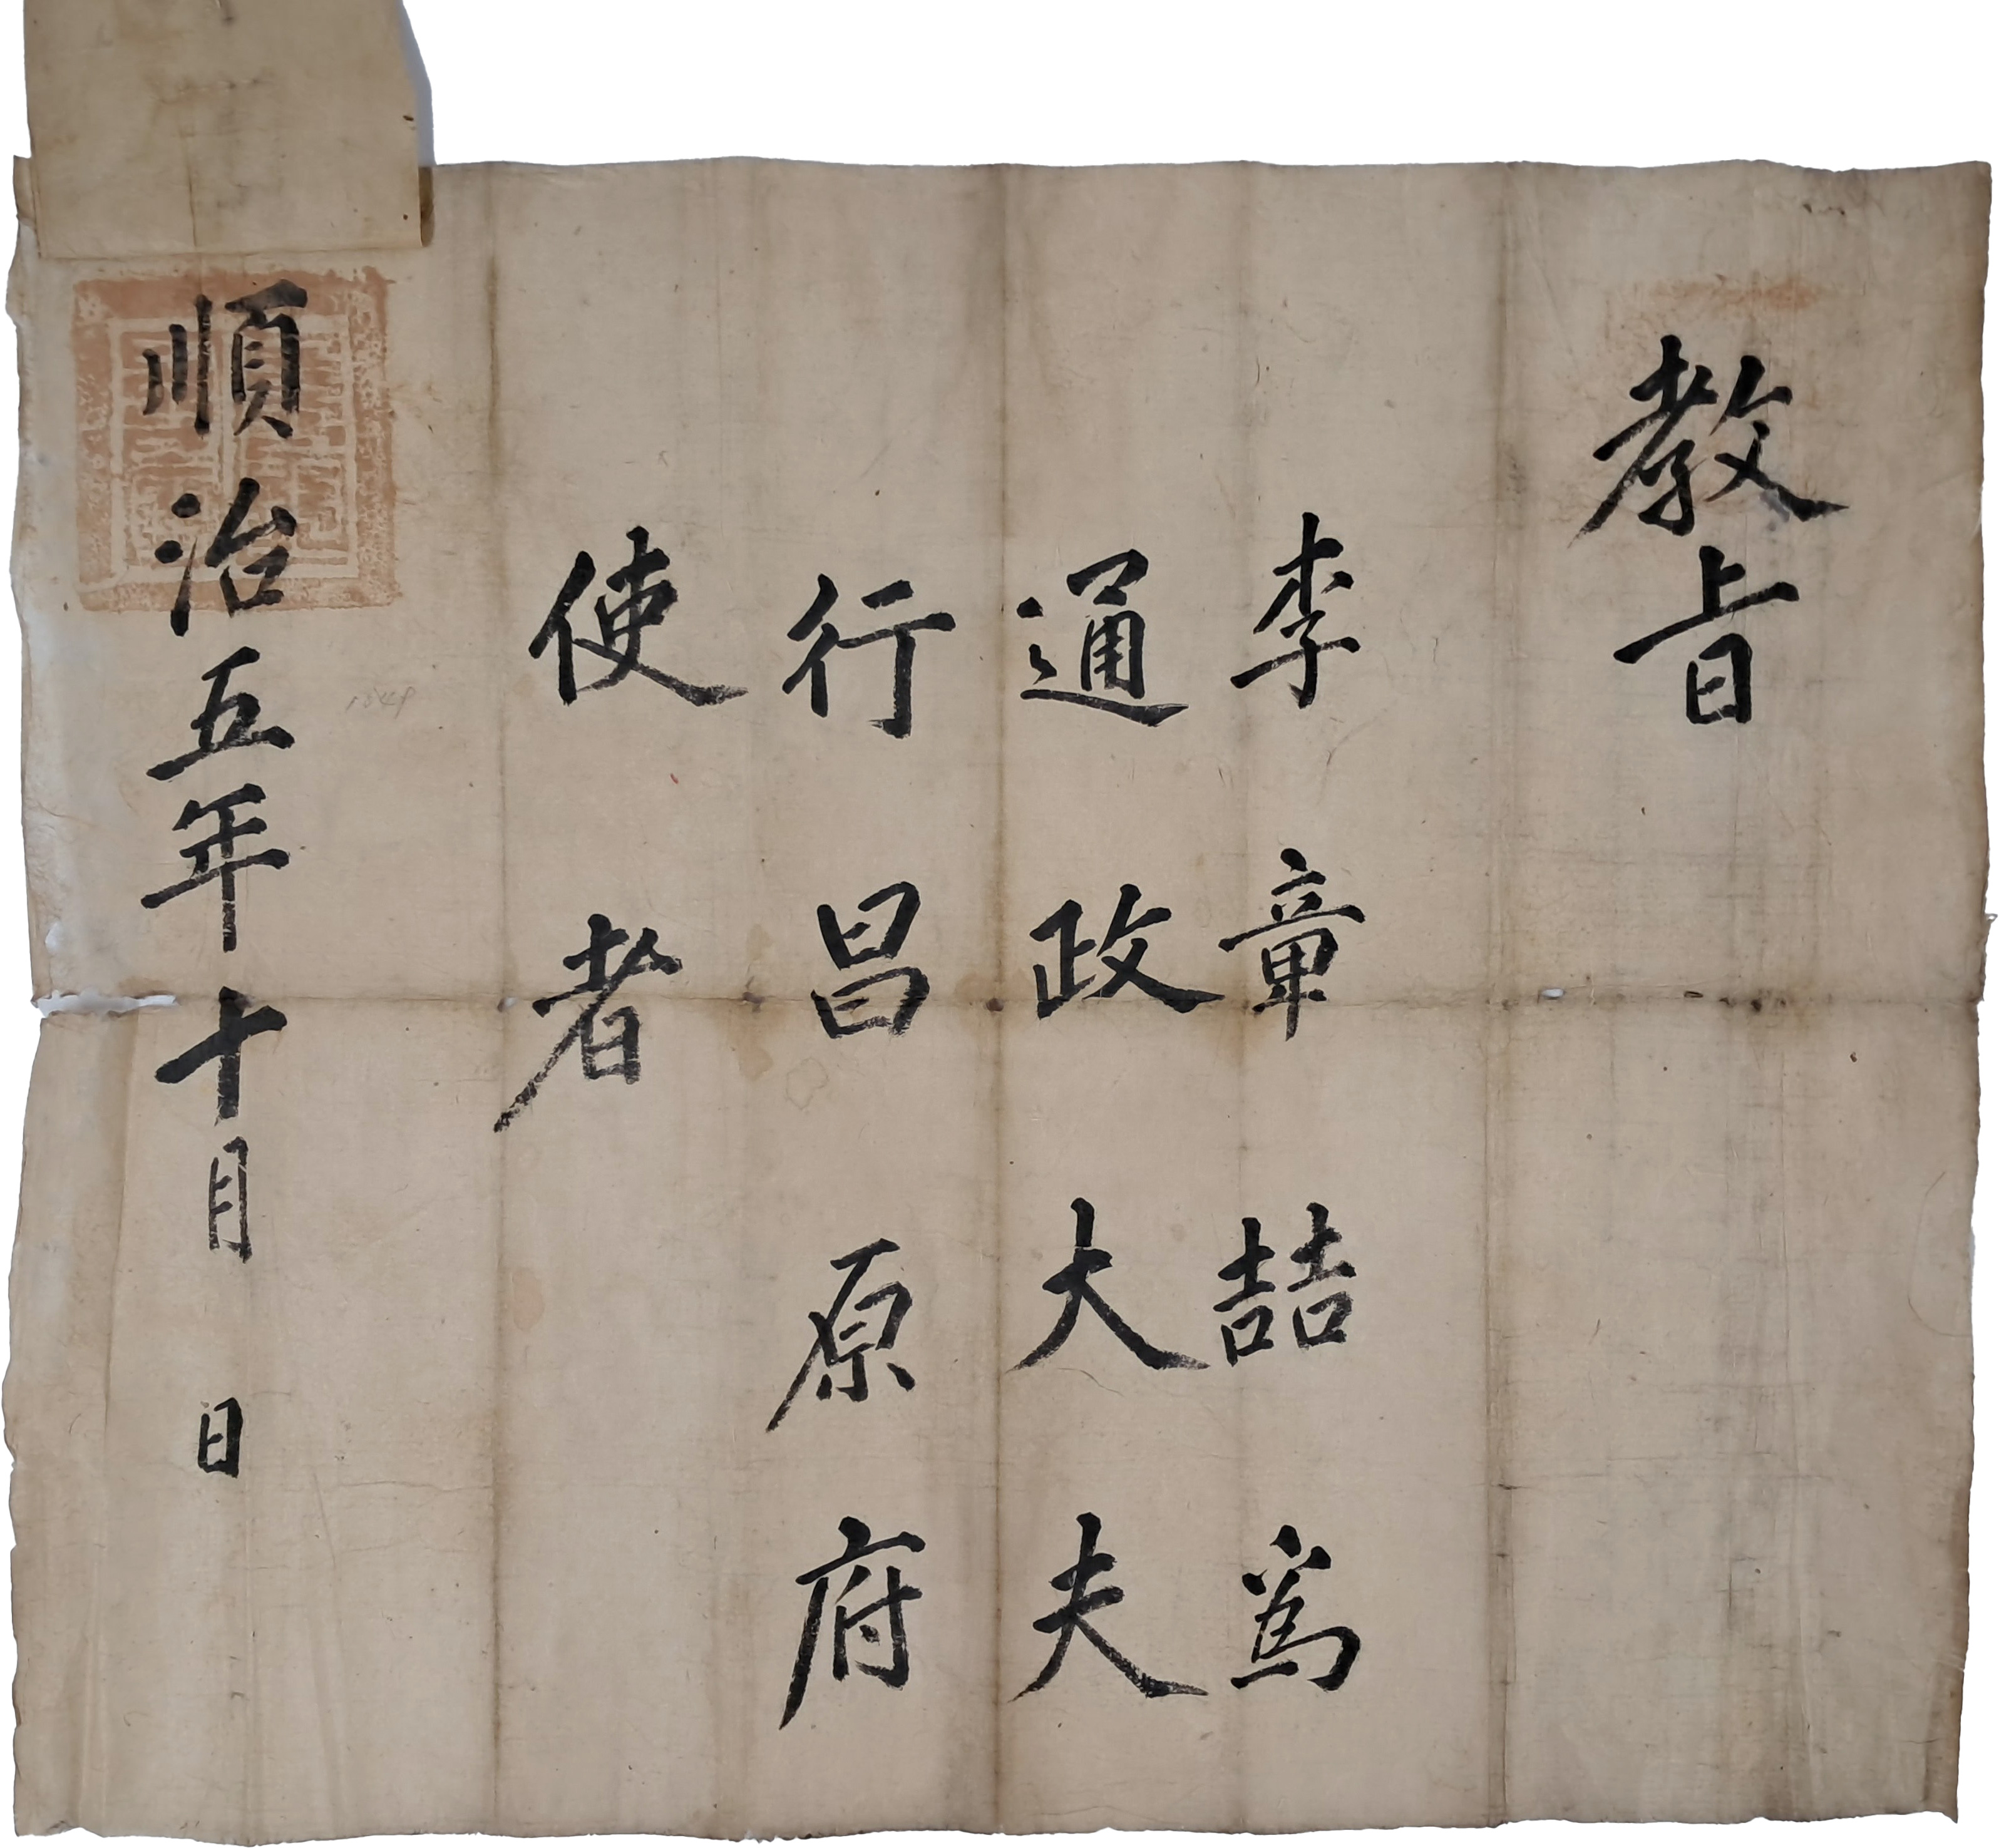 教旨
李章喆爲
通政大夫
行昌原府
使者
順治五年十月 日